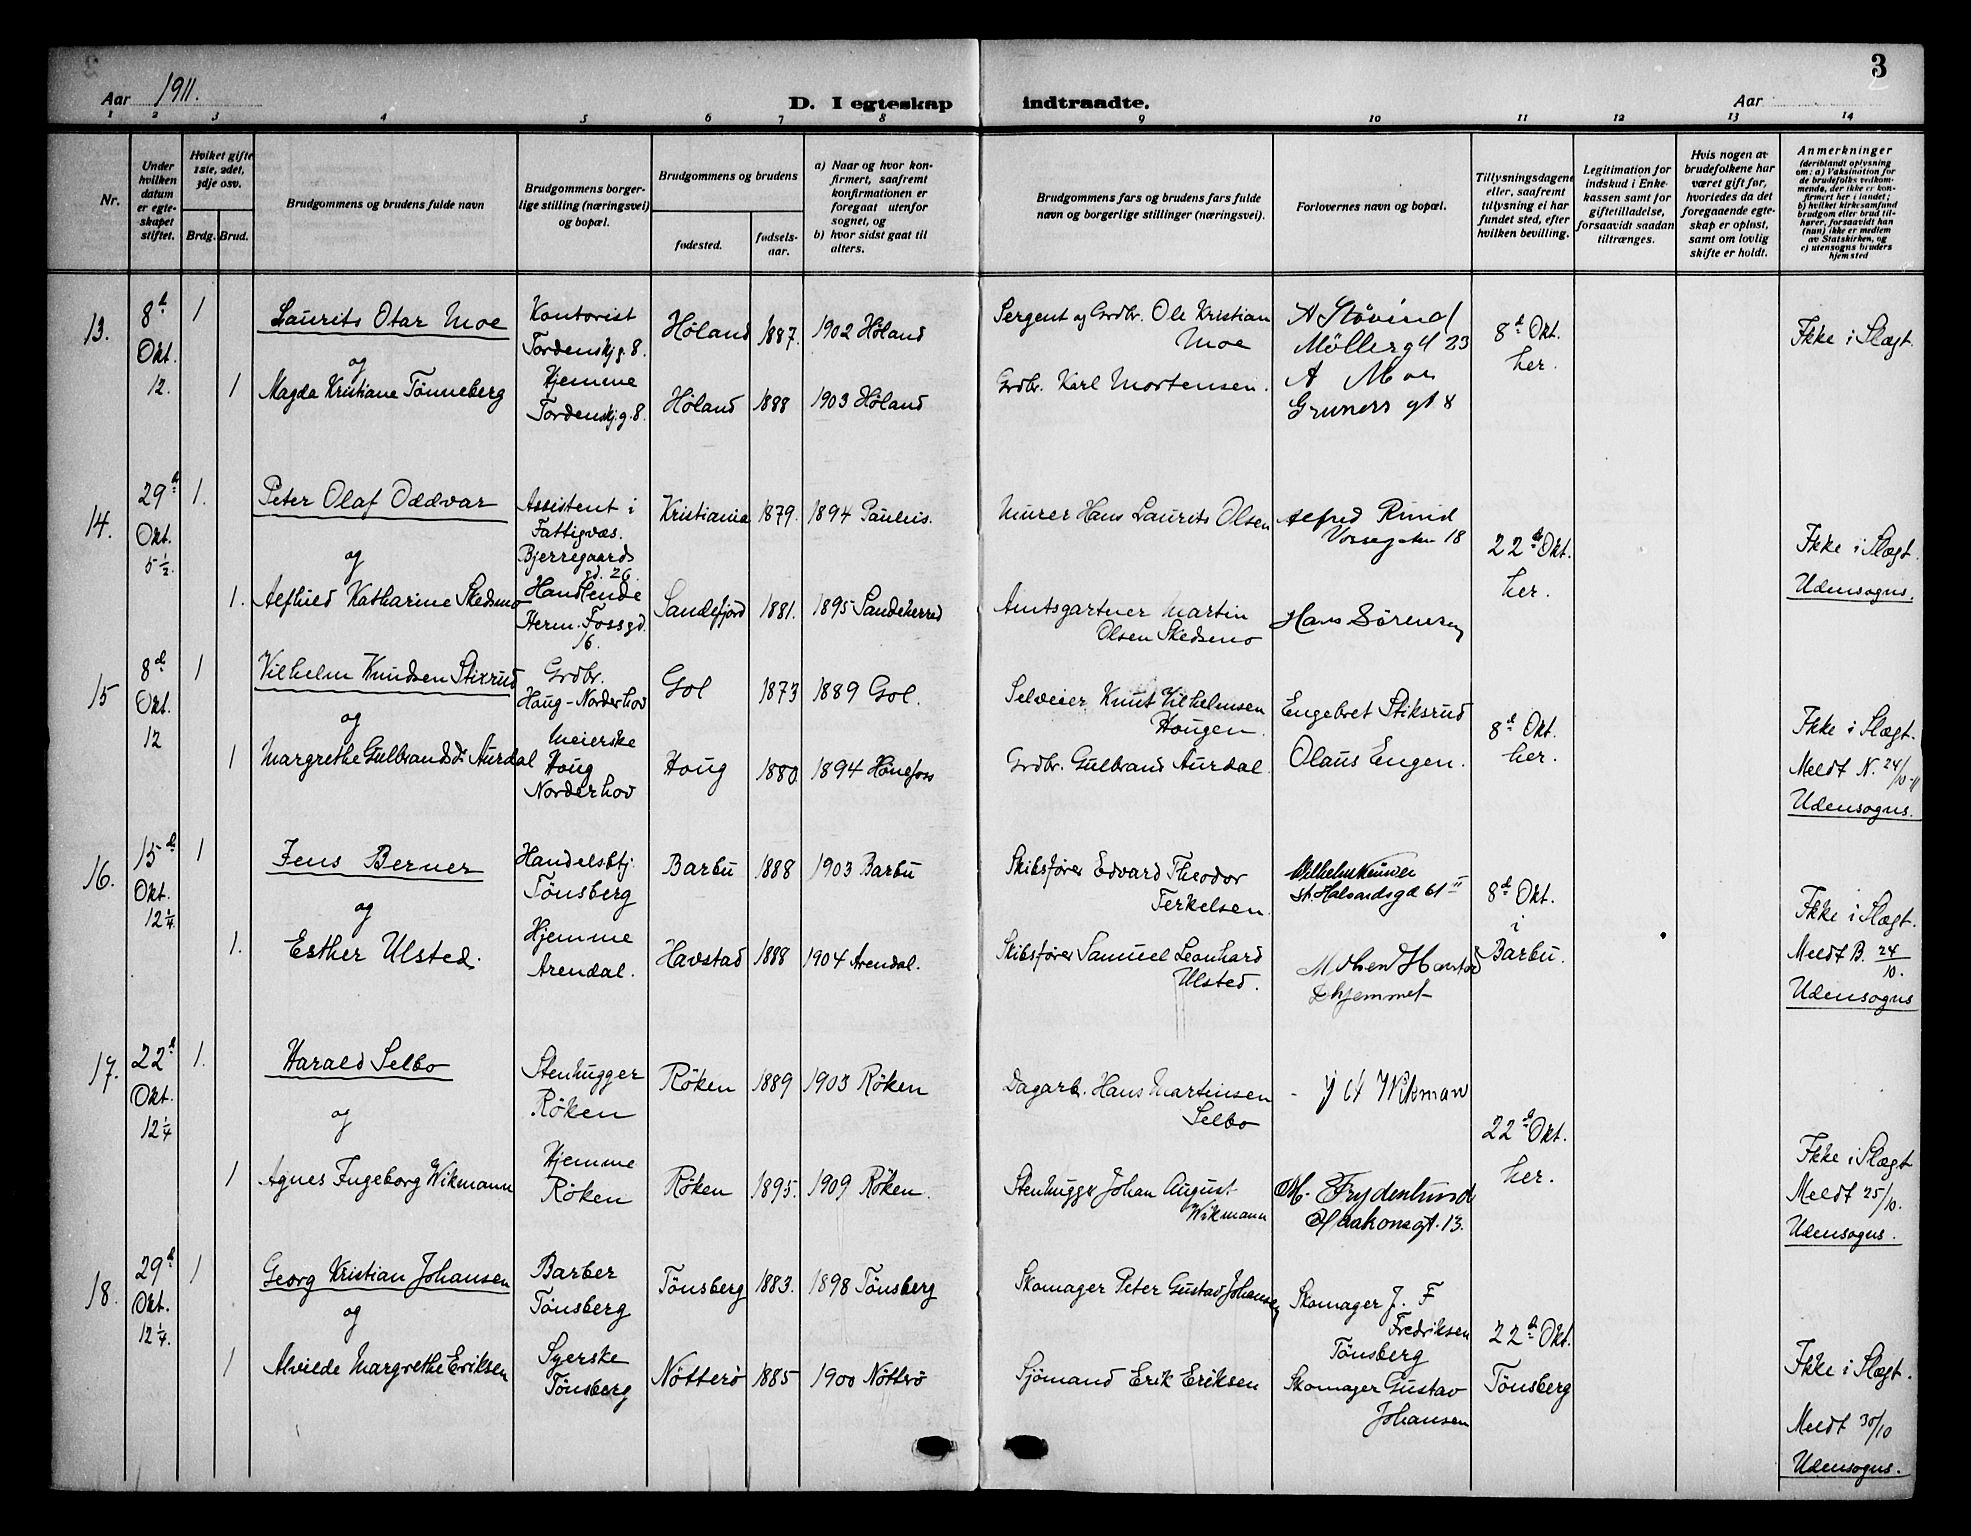 3
Aar 1911.
D. I egteskap indtraadte.
Aar
1 2 3 4 5 6 7 8 9 10 11 12 13 14
Nr.
Under hvilken datum er egteskapet stiftet.
Hvilket gifte 1ste, 2det, 3dje osv.
Brdg. Brud.
Brudgommens og brudens fulde navn
Brudgommens borgerlige stilling (næringsvei) og bopæl.
Brudgommens og brudens
fødested.
fødselsaar.
a) Naar og hvor konfirmert, saafremt konfirmationen er foregaat utenfor sognet, og
b) hvor sidst gaat til alters.
Brudgommens fars og brudens fars fulde navn og borgerlige stillinger (næringsvei).
Forlovernes navn og bopæl.
Tillysningsdagene eller, saafremt tillysning ei har fundet sted, efter hvilken bevilling.
Legitimation for indskud i Enkekassen samt for giftetilladelse, forsaavidt saadan tiltrænges.
Hvis nogen av brudefolkene har været gift før, hvorledes da det foregaaende egteskap er opløst, samt om lovlig skifte er holdt.
Anmerkninger (deriblandt oplysning om: a) Vaksination for de brudefolks vedkommende, der ikke er konfirmert her i landet; b) hvilket kirkesamfund brudgom eller brud tilhører, forsaavidt han (hun) ikke er medlem av Statskirken, og c) utensogns bruders hjemsted
13. 8d Okt. 12. 1 Laurits Otar Moe Kontorist Tordenskj.g. 8. Høland 1887. 1902 Høland Sergent og Grdbr. Ole Kristian Moe A Støvind Møllergd 23 8d Okt. her. Ikke i Slægt.
og
1 Magda Kristiane Tønneberg Hjemme Tordenskj.g. 8. Høland 1888 1903 Høland Grdbr. Karl Mortensen. A Moe Gruners gt 8
14. 29d Okt. 5 1/2. 1. Peter Olaf Oddvar Assistent i Fattigvæs. Bjerregaards gd. 26. Kristiania 1879. 1894 Paulus. Murer Hans Laurits Olsen Alfred Rund Vossegaten 18 22d Okt. her. Ikke i Slægt. Udensogns.
og
1. Alfhild Katharine Skedsmo Handlende Herm. Fossgd. 16. Sandefjord 1881. 1895 Sandeherred Amtsgartner Martin Olsen Skedsmo Hans Sørensen
15 8d Okt. 12 1 Vilhelm Knudsen Stixrud Grdbr. Houg-Norderhov Gol 1873 1889 Gol. Selveier Knut Vilhelmsen Hougen. Engebret Stiksrud 8d Okt. her. Ikke i Slægt. Meldt N. 24/10-11 Udensogns.
og
1 Margrethe Gulbrandsd. Aurdal Meierske Houg Norderhov Houg 1880 1894 Hønefoss Grdbr. Gulbrand Aurdal. Olaus Engen.
16. 15d Okt. 12 1/4. 1 Jens Berner Handelsbtj. Tønsberg Barbu 1888 1903 Barbu Skibsfører Edvard Theodor Terkelsen. St. Halvardsgd 61 II 8d Okt. i Barbu. Ikke i Slægt. Meldt B. 24/10. Udensogns
og
1. Esther Ulsted. Hjemme Arendal. Havstad 1888 1904 Arendal. Skibsfører Samuel Leonhard Ulsted.
17. 22d Okt. 12 1/4 1. Harald Selbo Stenhugger Røken Røken 1889 1903 Røken Dagarb. Hans Martinsen Selbo Wikman 22d Okt. her. Ikke i Slægt Meldt 25/10. Udensogns.
og
1 Agnes Ingeborg Wikmann Hjemme Røken Røken 1895. 1909 Røken. Stenhugger Johan August Wikmann M. Frydenlund Haakonsgt. 13.
18. 29d Okt. 12 1/4. 1 Georg Kristian Johansen Barber Tønsberg Tønsberg 1883. 1898 Tønsberg Skomager Peter Gustav Johansen Skomager J. F Fredriksen Tønsberg 22d Okt. Tønsberg Ikke i Slægt. Meldt 30/10 Udensogns.
og
1 Alvilde Margrethe Eriksen Syerske Tønsberg Nøtterø 1885 1900 Nøtterø Sjømand Erik Eriksen Skomager Gustav Johansen